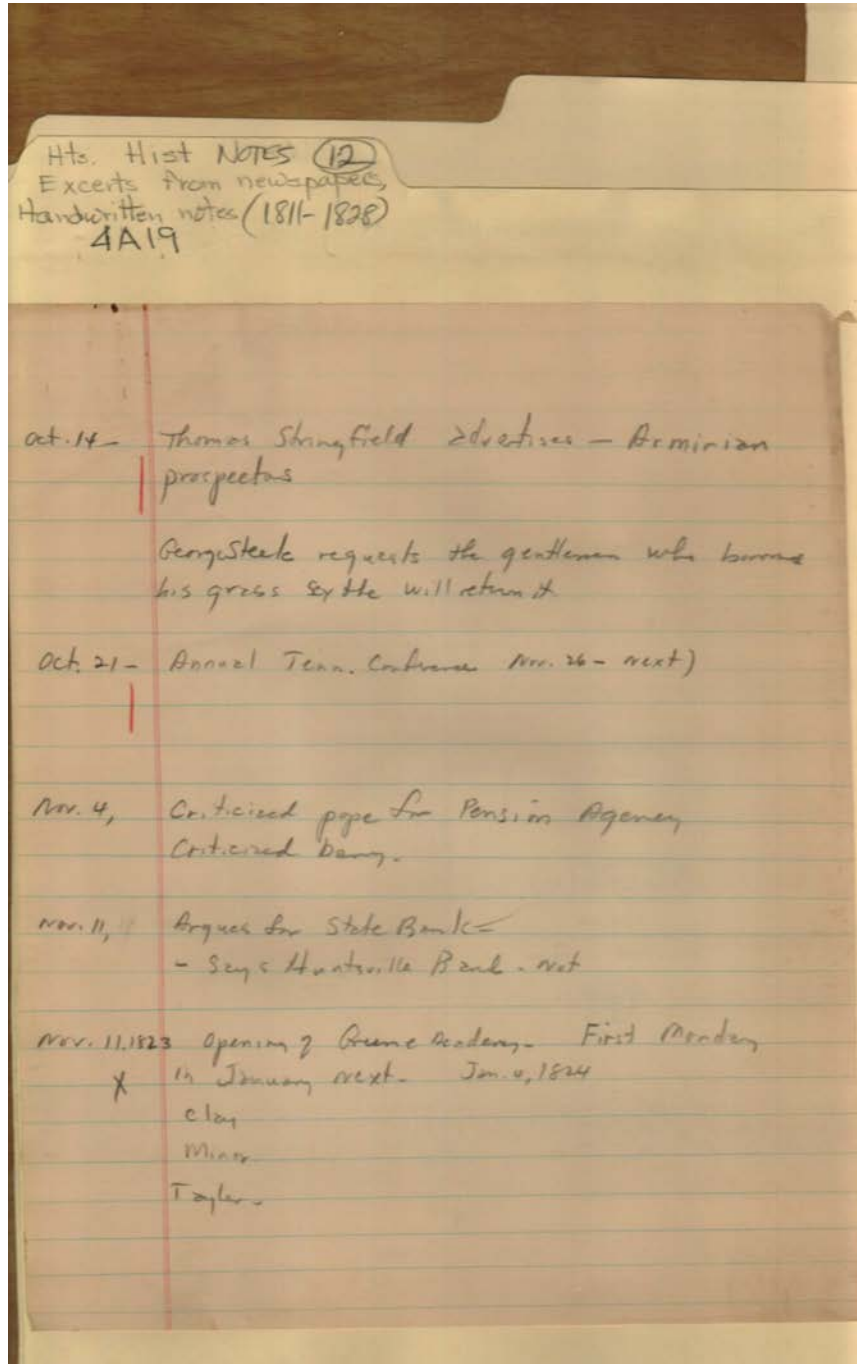 Hts. Hist NOTES (12)
Excerts from newspapers,
Handwritten notes (1811-1828)
4A19
Oct. 14 - Thomas Stringfield advertises - Arminian
prospectus
George Steele requests the gentleman who borrowed
his grass scythe will return it
Oct. 21 - Annual Tenn. Conference Nov. 26 - next)
Nov. 4, Criticized pope for Pension Agency
Criticized
Nov. 11, Argues for State Bank -
- Says Huntsville Bank - not
Nov. 11, 1823 Opening of Greene Academy - First Monday
X in January next - Jan. 1824
Clay
Minor
Taylor -